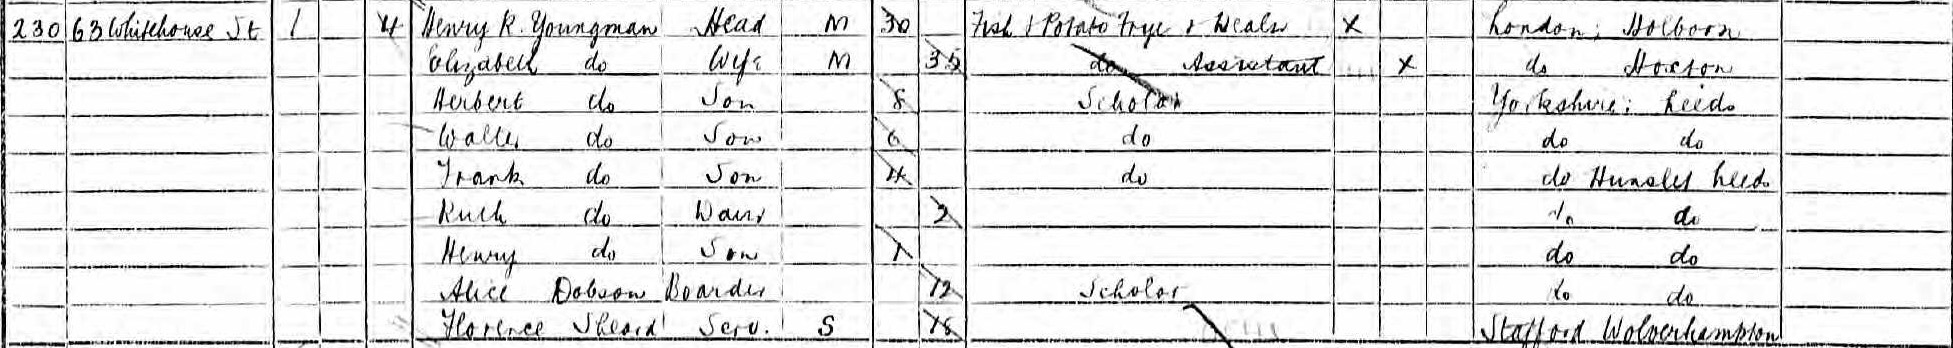 230 63 Whitehouse St 1 4 Henry R. Youngman Head M 30 Fish & Potato Fryer & Dealer X London; Holborn
Elizabeth do Wife M 35 do Assistant X do Hoxton
Herbert do Son 8 Scholar Yorkshire; Leeds
Walter do Son 6 do do do
Frank do Son 4 do do Hunslet Leeds
Ruth do Daur 2 do do
Henry do Son 1 do do
Alice Dobson Boarder 12 Scholar do do
Florence Sheard Serv. S 18 Stafford Wolverhampton